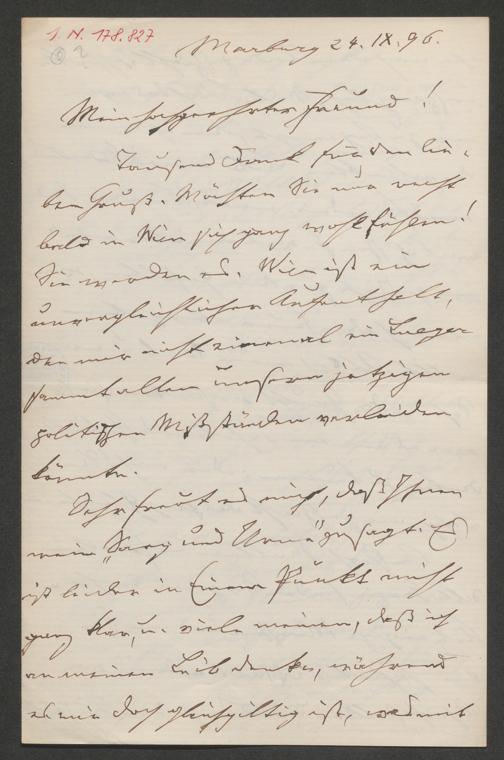 I. N. 178.827
Marburg 24. IX. 96.
Mein hochgeehrter Freund!
Tausend Dank für den lie-
ben Gruß. Möchten Sie nur recht
bald in Wien sich ganz wohl fühlen!
Sie werden es. Wien ist ein
unvergleichlicher Aufenthalt,
den mir nicht einmal ein Lueger
sammt allen unseren jetzigen
politischen Mißständen verleiden
könnte.
Sehr freut es mich, daß Ihnen
mein „Sarg und Urne" zusagt. Es
ist leider in Einem Punkt nicht
ganz klar, u. viele meinen, daß ich
an meinen Leib denke, während
es mir doch gleichgiltig ist, was mit